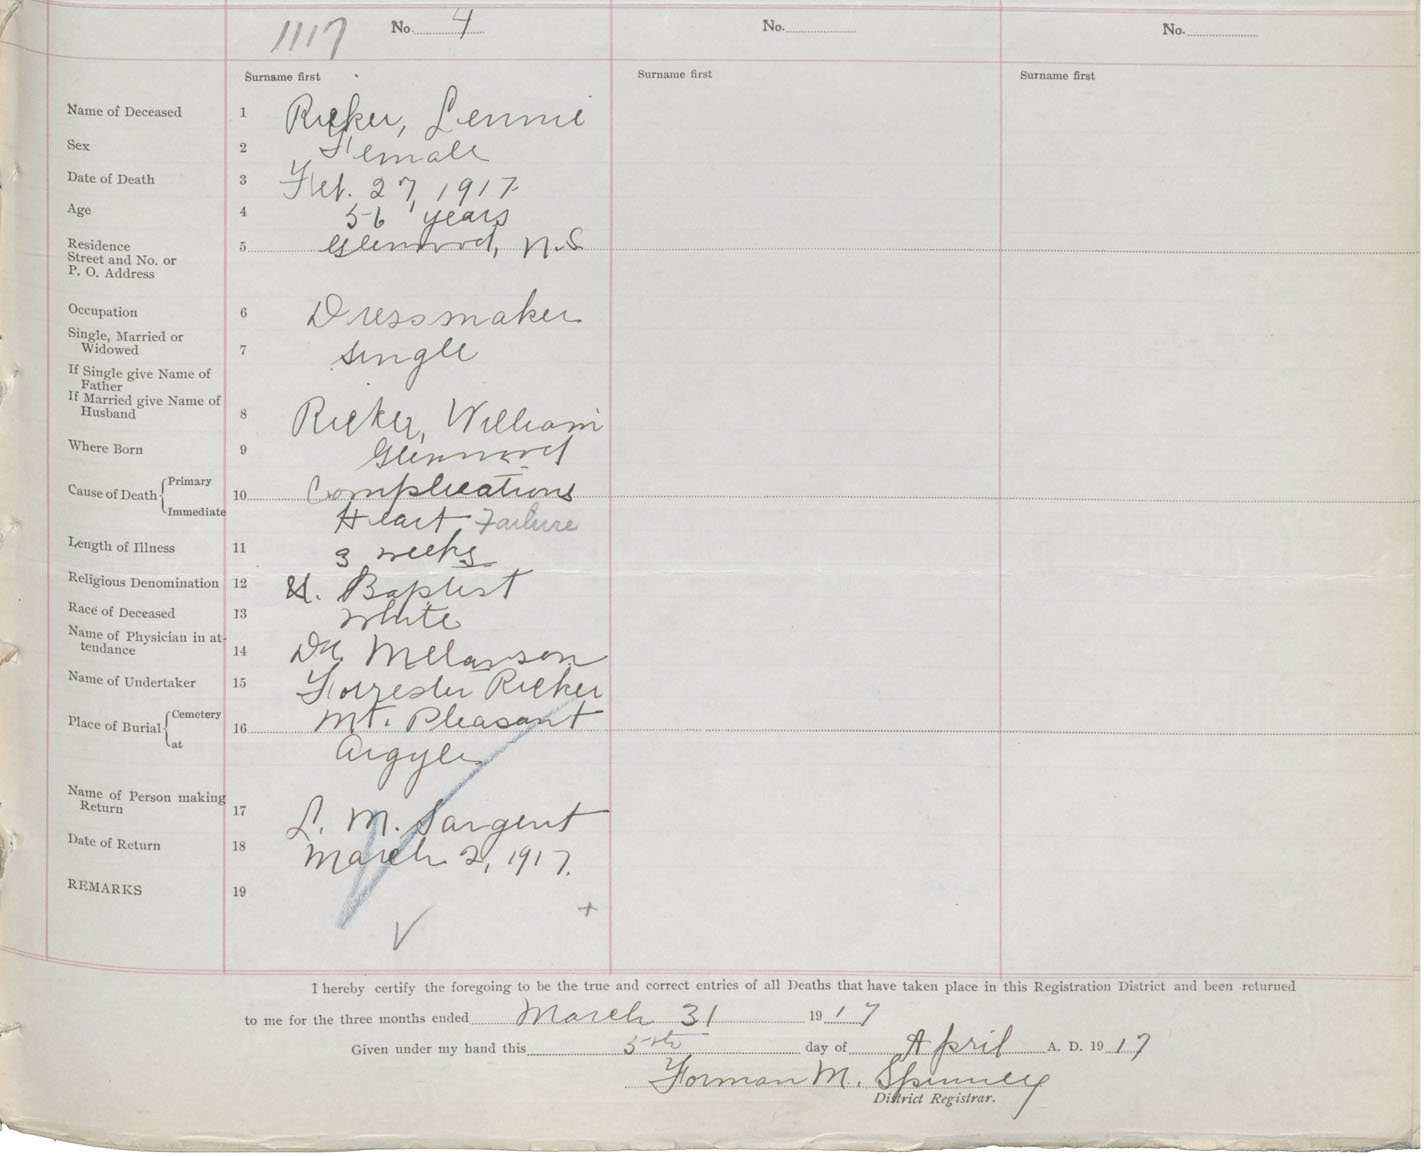 1117 No. 4 No. No.
Surname first Surname first Surname first
Name of Deceased 1 Ricker, Lennie
Sex 2 Female
Date of Death 3 Feb. 27, 1917
Age 4 56 years
Residence
Street and No. or
P. O. Address 5 Glenwood, N.S
Occupation 6 Dressmaker
Single, Married or
Widowed 7 single
If Single give Name of
Father
If Married give Name of
Husband 8 Ricker, William
Where Born 9 Glenwood
Cause of Death Primary 10 Complications
Immediate Heart Failure
Length of Illness 11 3 weeks
Religious Denomination 12 U. Baptist
Race of Deceased 13 White
Name of Physician in at-
tendance 14 Dr. Melanson
Name of Undertaker 15 Forrester Ricker
Place of Burial Cemetery 16 Mt. Pleasant
at Argyle
Name of Person making
Return 17 L. M. Sargent
Date of Return 18 March 2, 1917.
REMARKS 19
I hereby certify the foregoing to be the true and correct entries of all Deaths that have taken place in this Registration District and been returned
to me for the three months ended March 31 1917
Given under my hand this 5th day of April A. D. 1917
Forman M. Spinney
District Registrar.